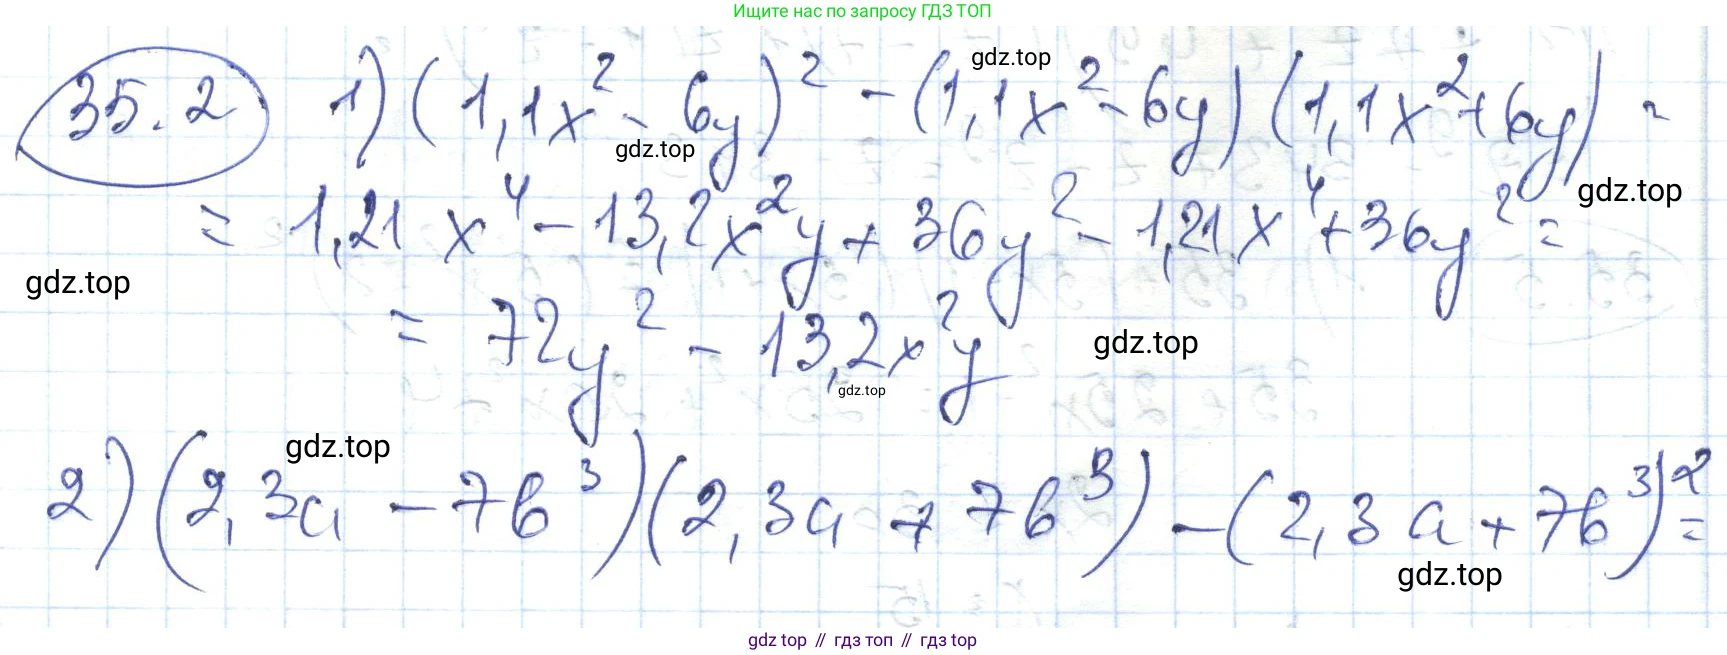 Ищите нас по запросу ГДЗ ТОП
gdz.top
35.2 1) (1,1x² - 6y)² - (1,1x² - 6y)(1,1x² + 6y) =
gdz.top
gdz.top
= 1,21x⁴ - 13,2x²y + 36y² - 1,21x⁴ + 36y² =
gdz.top
= 72y² - 13,2x²y
gdz.top
gdz.top
gdz.top
2) (2,3a - 7b³)(2,3a + 7b³) - (2,3a + 7b³)² =
gdz.top
gdz top // гдз топ // гдз top